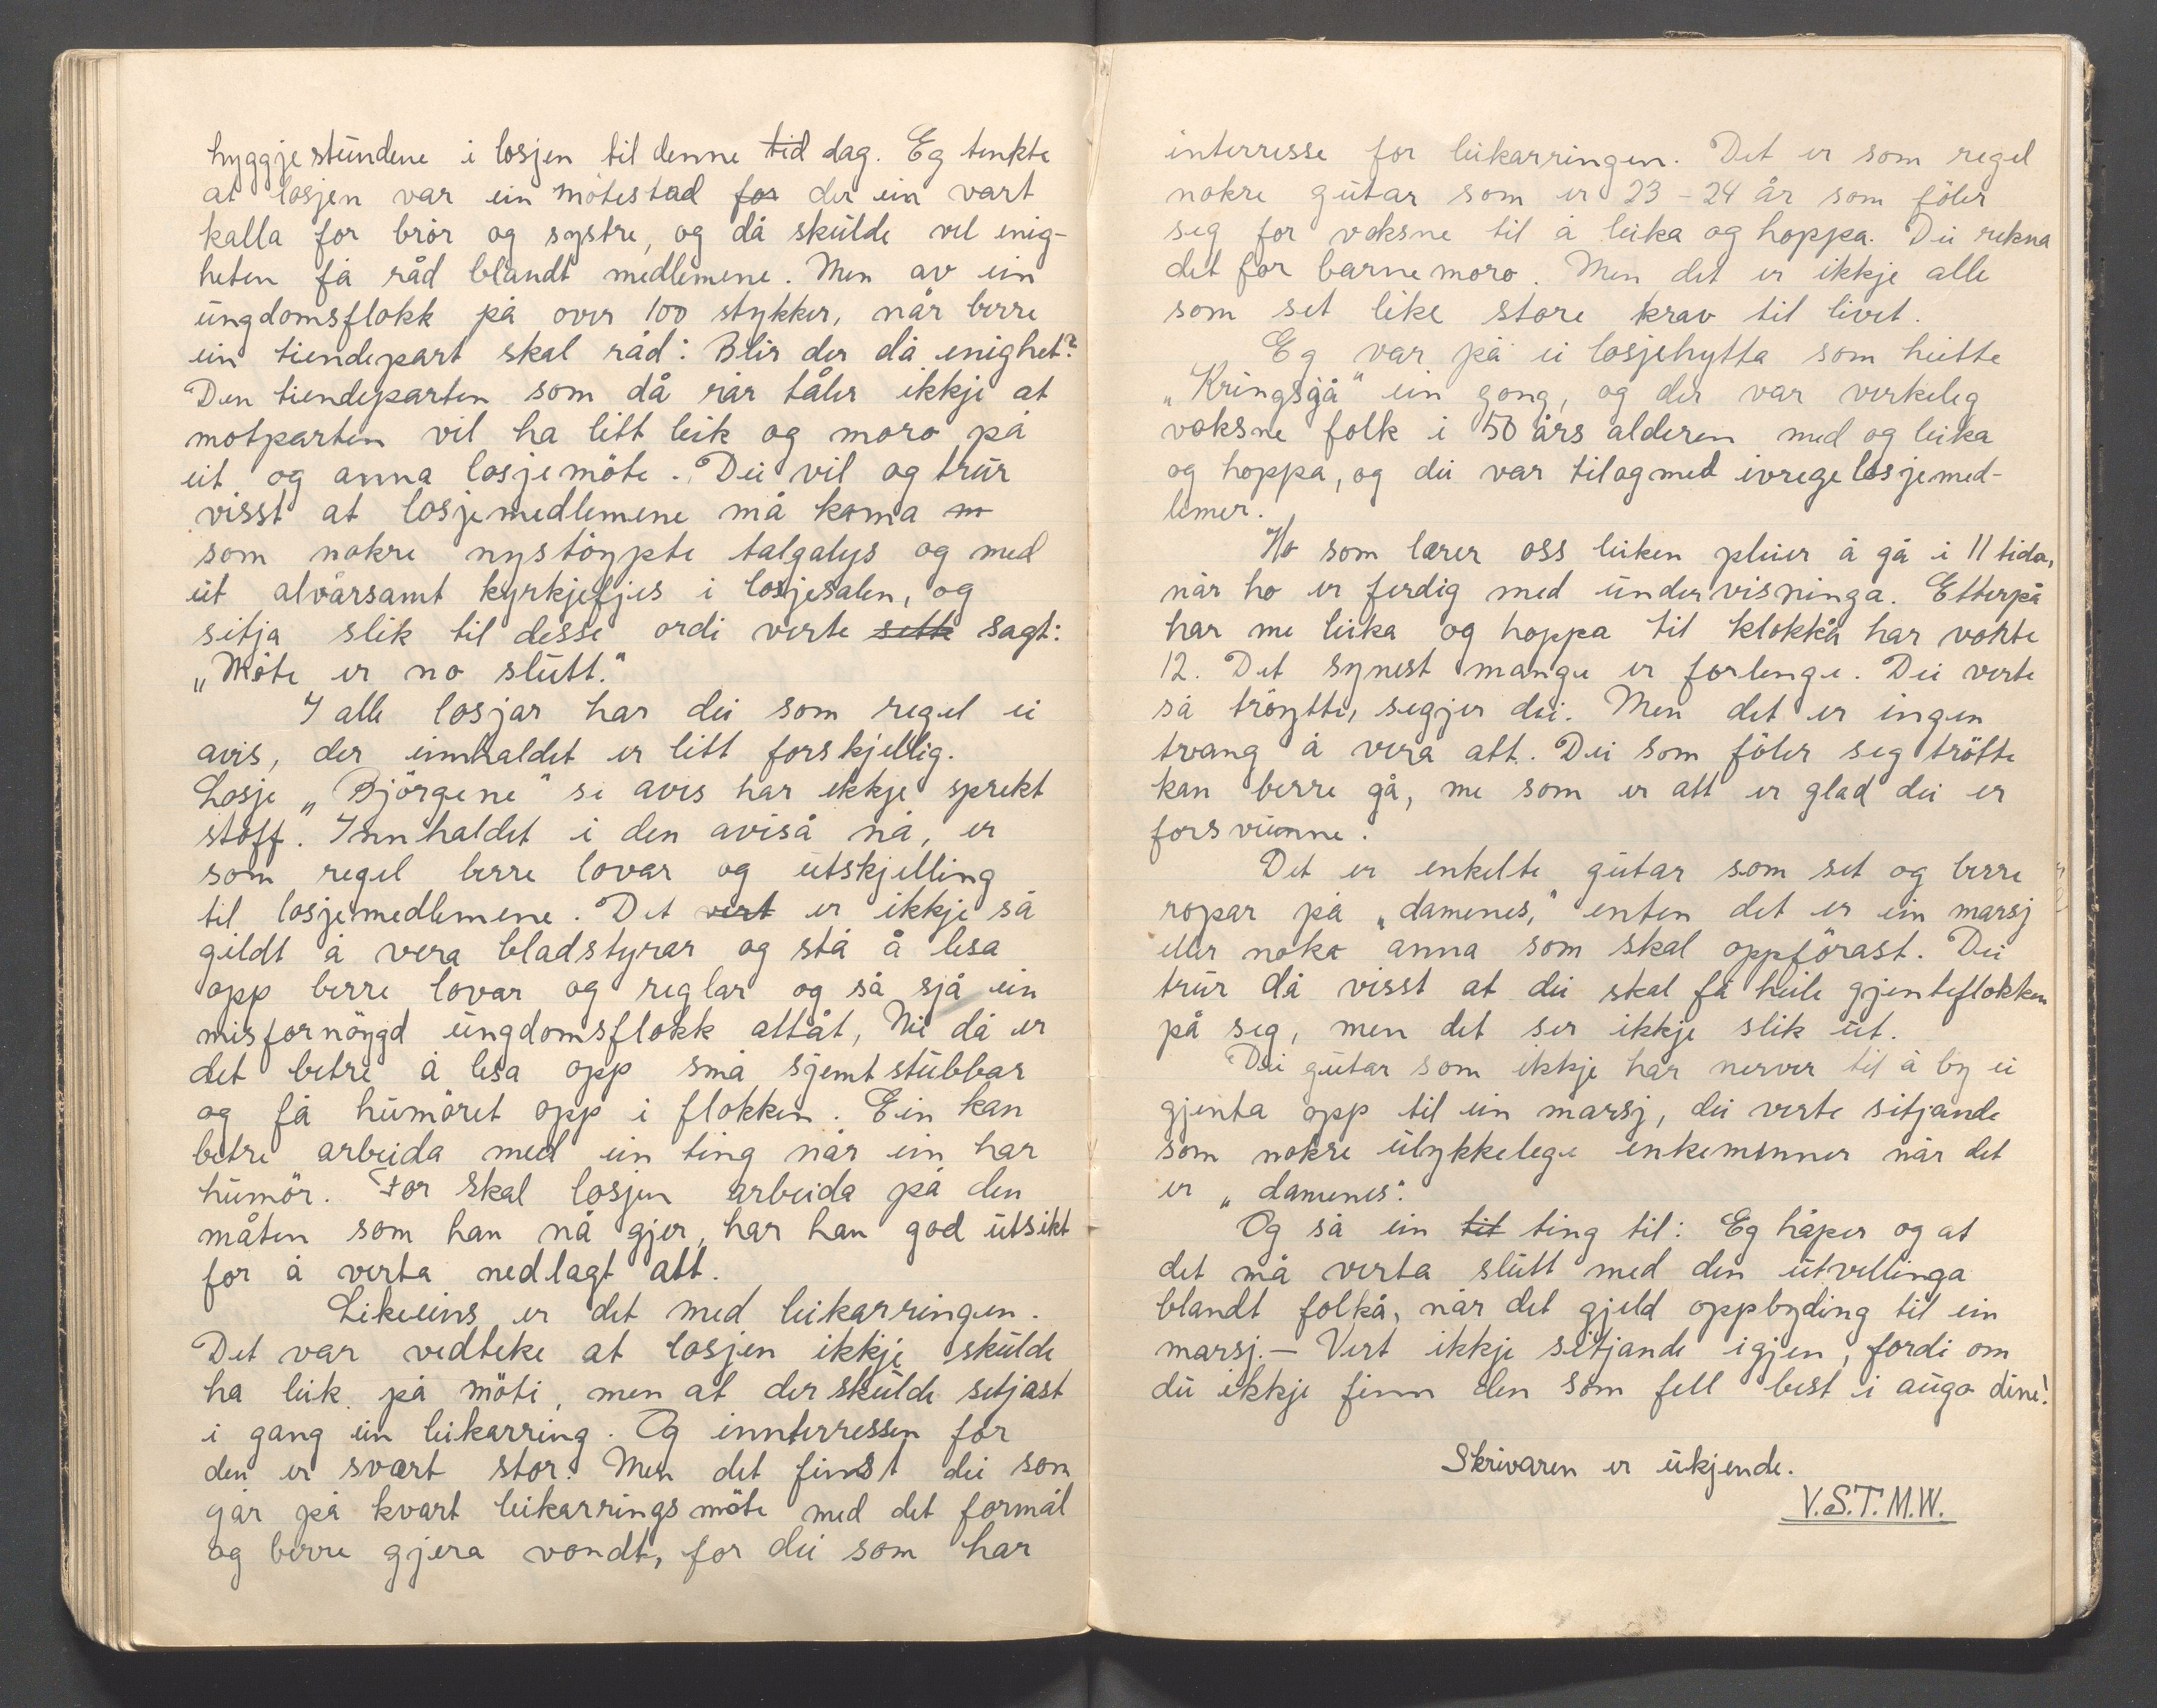 hyggjestundene i losjen til denne tid dag. Eg tenkte
at losjen var ein mötestad for der ein vart
kalla for brör og systre, og då skulde vel enig-
heten få råd blandt medlemene. Men av ein
ungdomsflokk på over 100 stykker, når berre
ein tiendepart skal råd: Blir der då enighet?
Den tiendeparten som då rår tåler ikkje at
motparten vil ha litt leik og moro på
eit og anna losjemöte. Dei vil og trur
visst at losjemedlemene må koma m
som nokre nystöypte talgalys og med
eit alvårsamt kyrkjefjes i losjesalen, og
sitja slik til desse ordi verte sett sagt:
„Möte er no slutt."
I alle losjar har dei som regel ei
avis, der innhaldet er litt forskjellig.
Losje „Björgene" si avis har ikkje sprekt
stoff. Innhaldet i den aviså nå, er
som regel berre lovar og utskjelling
til losjemedlemene. Det vert er ikkje så
gildt å vera bladstyrar og stå å lesa
opp berre lovar og reglar og så sjå ein
misfornöygd ungdomsflokk attåt, Nei då er
det betre å lesa opp små sjemtstubbar
og få humöret opp i flokken. Ein kan
betre arbeida med ein ting når ein har
humör. For skal losjen arbeida på den
måten som han nå gjer, har han god utsikt
for å verta nedlagt att.
Likeeins er det med leikarringen.
Det var vedteke at losjen ikkje skulde
ha leik på möti, men at der skulde setjast
i gang ein leikarring. Og innterressen for
den er svært stor. Men det finst dei som
går på kvart leikarringsmöte med det formål
og berre gjera vondt, for dei som har
interresse for leikarringen. Det er som regel
nokre gutar som er 23 - 24 år som föler
seg for voksne til å leika og hoppa. Dei rekna
det for barnemoro. Men det er ikkje alle
som set like store krav til livet.
Eg var på ei losjehytta som heitte
„Kringsjå" ein gong, og der var verkeleg
voksne folk i 50 års alderen med og leika
og hoppa, og dei var tilogmed ivrege losjemed-
lemer.
Ho som lærer oss leiken pleier å gå i 11 tida,
når ho er ferdig med undervisninga. Etterpå
har me leika og hoppa til klokkå har vorte
12. Det synest mange er forlenge. Dei verte
så tröytte, segjer dei. Men det er ingen
tvang å vera att. Dei som föler seg trötte
kan berre gå, me som er att er glad dei er
forsvunne.
Det er enkelte gutar som set og berre
ropar på „damenes," enten det er ein marsj
eller noko anna som skal oppförast. Dei
trur då visst at dei skal få heile gjenteflokken
på seg, men det ser ikkje slik ut.
Dei gutar som ikkje har nerver til å by ei
gjenta opp til ein marsj, dei verte sitjande
som nokre ulykkelege enkemenner når det
er „damenes".
Og så ein tit ting til: Eg håper og at
det må verta slutt med den utvellinga
blandt folkå, når det gjeld oppbyding til ein
marsj. – Vert ikkje sitjande igjen, fordi om
du ikkje finn den som fell best i augo dine!
Skrivaren er ukjende.
V.S.T.M.W.